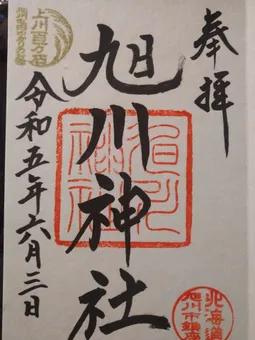 奉拝
旭川神社
旭川神社
令和五年六月三日
上川百万石
北海道
旭川市鎮座